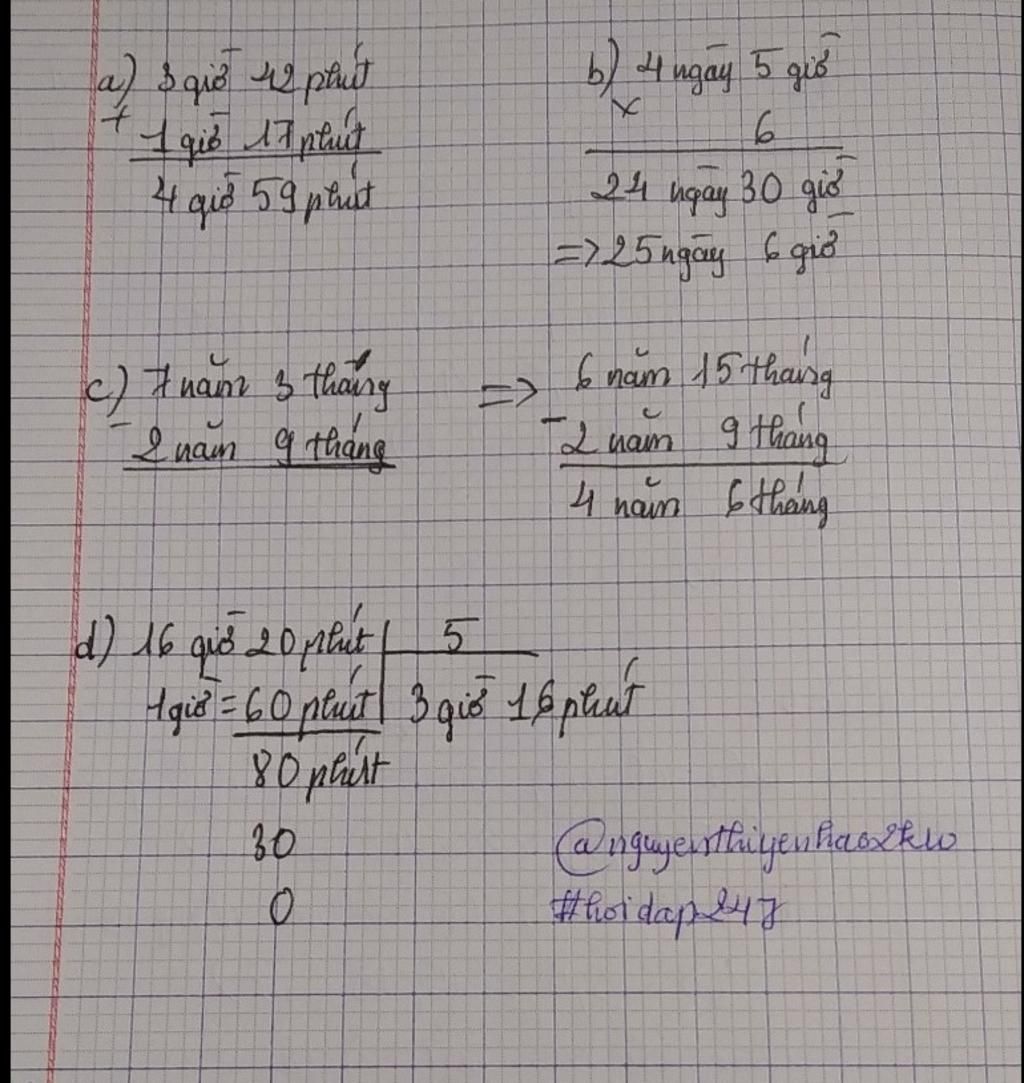 a) 3 giờ 42 phút
+
1 giờ 17 phút
4 giờ 59 phút
b) 4 ngày 5 giờ
x
6
24 ngày 30 giờ
=> 25 ngày 6 giờ
c) 7 năm 3 tháng
-
2 năm 9 tháng
=>
6 năm 15 tháng
-
2 năm 9 tháng
4 năm 6 tháng
d) 16 giờ 20 phút | 5
1 giờ = 60 phút | 3 giờ 16 phút
80 phút
30
0
@nguyenthiyenhao2k10
#hoidap247